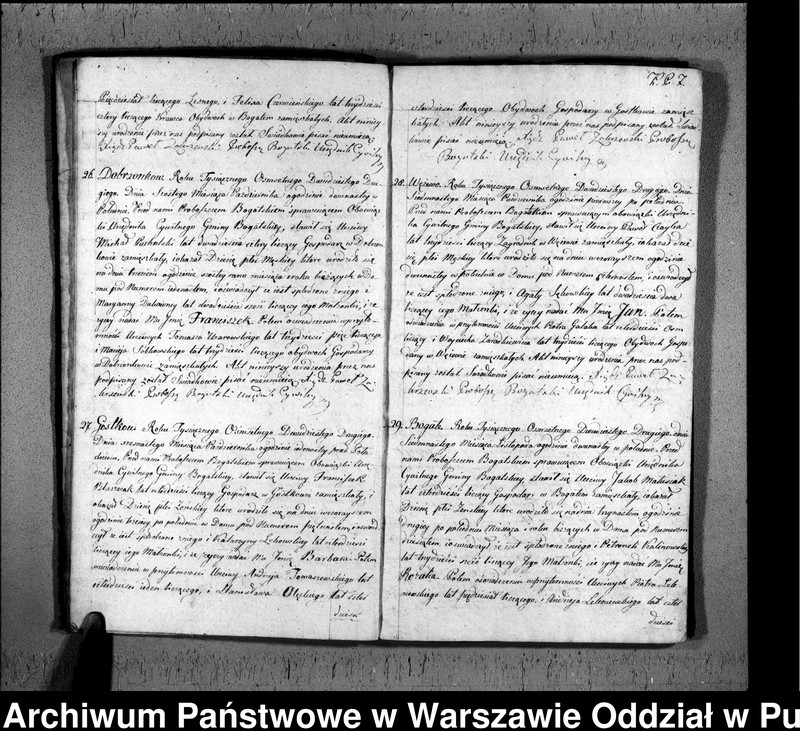 Pięćdziesiąt liczącego Leśnego, i Felixa Czerwińskiego lat trzydzieści
cztery liczącego Obydwoch w Bogatem zamieszkałych. Akt niniey
szy urodzenia przez nas podpisany został Swiadkowie pisać nieumieią
Xiądz Paweł Proboszcz Bogatski Urzędnik Cywilny
26. Roku Tysiącznego Osmsetnego Dwudziestego Dru
giego. Dnia Szóstego Miesiąca Października o godzinie dwunastey w
Południe. Przed nami Proboszczem Bogatskim sprawuiącym Obowiąz
ki Urzędnika Cywilnego Gminy Bogatskiey, stawił się Uczciwy
Michał lat dwadzieścia cztery liczący Gospodarz w
zamieszkały, i okazał Dziecię płci Męskiey które urodziło się
na dniu trzecim o godzinie szóstey rano miesiąca i roku bieżących w Do
mu pod Numerem iedenastem, oświadczył iż iest spłodzone z niego i
Maryanny lat dwadzieścia sześć liczącey iego Małżonki, i że
życzy nadać Mu Imię Franciszek. Potem oświadczeniu w przyto
mności Uczciwych Tomasza lat trzydzieści pięć liczącego
i Macieja lat trzydzieści liczącego obydwoch Gospodarzy
w zamieszkałych. Akt ninieyszy urodzenia przez nas
podpisany został Swiadkowie pisać nieumieią. Xiądz Paweł
Proboszcz Bogatski Urzędnik Cywilny
27. Gostkow Roku Tysiącznego Osmsetnego Dwudziestego Drugiego.
Dnia Miesiąca Października o godzinie przed Połu
dniem, Przed nami Proboszczem Bogatskim sprawuiącym Obowiązki Urzę
dnika Cywilnego Gminy Bogatskiey, stawił się Uczciwy Franciszek
lat czterdzieści liczący Gospodarz w Gostkowie zamieszkały, i
okazał Dziecię płci Żeńskiey które urodziło się na dniu wczorayszym
o godzinie trzeciey po południu w Domu pod Numerem piętnastem, i oświad
czył iż iest spłodzone z niego i Katarzyny lat czterdzieści
liczącey iego Małżonki, i że życzy nadać Mu Imię Barbara. Potem
oświadczeniu w przytomności Uczciwych Andrzeja Tomaszewskiego lat
czterdzieści ieden liczącego, i Stanisława lat czter
dzieści
czterdzieści liczącego Obydwoch Gospodarzy w Gostkowie zamiesz
kałych. Akt ninieyszy urodzenia przez nas podpisany został Swiad
kowie pisać nieumieią. Xiądz Paweł Proboszcz
Bogatski Urzędnik Cywilny
28. Roku Tysiącznego Osmsetnego Dwudziestego Drugiego, Dnia
Siedmnastego Miesiąca Października o godzinie pierwszey po południu.
Przed nami Proboszczem Bogatskim sprawuiącym obowiązki Urzędni
ka Cywilnego Gminy Bogatskiey, stawił się Uczciwy Paweł
lat trzydzieści liczący Zagrodnik w zamieszkały, i okazał Dzie
cię płci Męskiey które urodziło się na dniu wczorayszym o godzinie
dwunastey w południe w Domu pod Numerem i oświadczył
iż iest spłodzone z niego i Agaty lat dwadzieścia dwa
liczącey iego Małżonki, i że życzy nadać Mu Imię Jan. Potem
oświadczeniu w przytomności Uczciwych Piotra lat czterdzieści Osm
liczący i Woyciecha lat trzydzieści liczącego Obydwoch Gospo
darzy w zamieszkałych. Akt ninieyszy urodzenia przez nas pod
pisany został Swiadkowie pisać nieumieią. Xiądz Paweł
Proboszcz Bogatski Urzędnik Cywilny
29. Bogate. Roku Tysiącznego Osmsetnego Dwudziestego Drugiego, dnia
Siedmnastego Miesiąca Listopada o godzinie dwunastey w południe. Przed
nami Proboszczem Bogatskim sprawuiącym Obowiązki Urzędnika
Cywilnego Gminy Bogatskiey, stawił się Uczciwy Jakub
lat czterdzieści liczący Gospodarz w Bogatem zamieszkały, i okazał
Dziecię płci Żeńskiey które urodziło się na dniu trzynastym o godzinie
drugiey po południu Miesiąca i roku bieżących w Domu pod Numerem
dziesiątem i oświadczył iż iest spłodzone z niego i Petroneli
lat trzydzieści sześć liczącey Jego Małżonki, i że życzy nadać Mu Imię
Rozalia. Potem oświadczeniu w przytomności Uczciwych Piotra
lat pięćdziesiąt liczącego, i Andrzeja lat czter
dzieści
Archiwum Państwowe w Warszawie Oddział w Pu